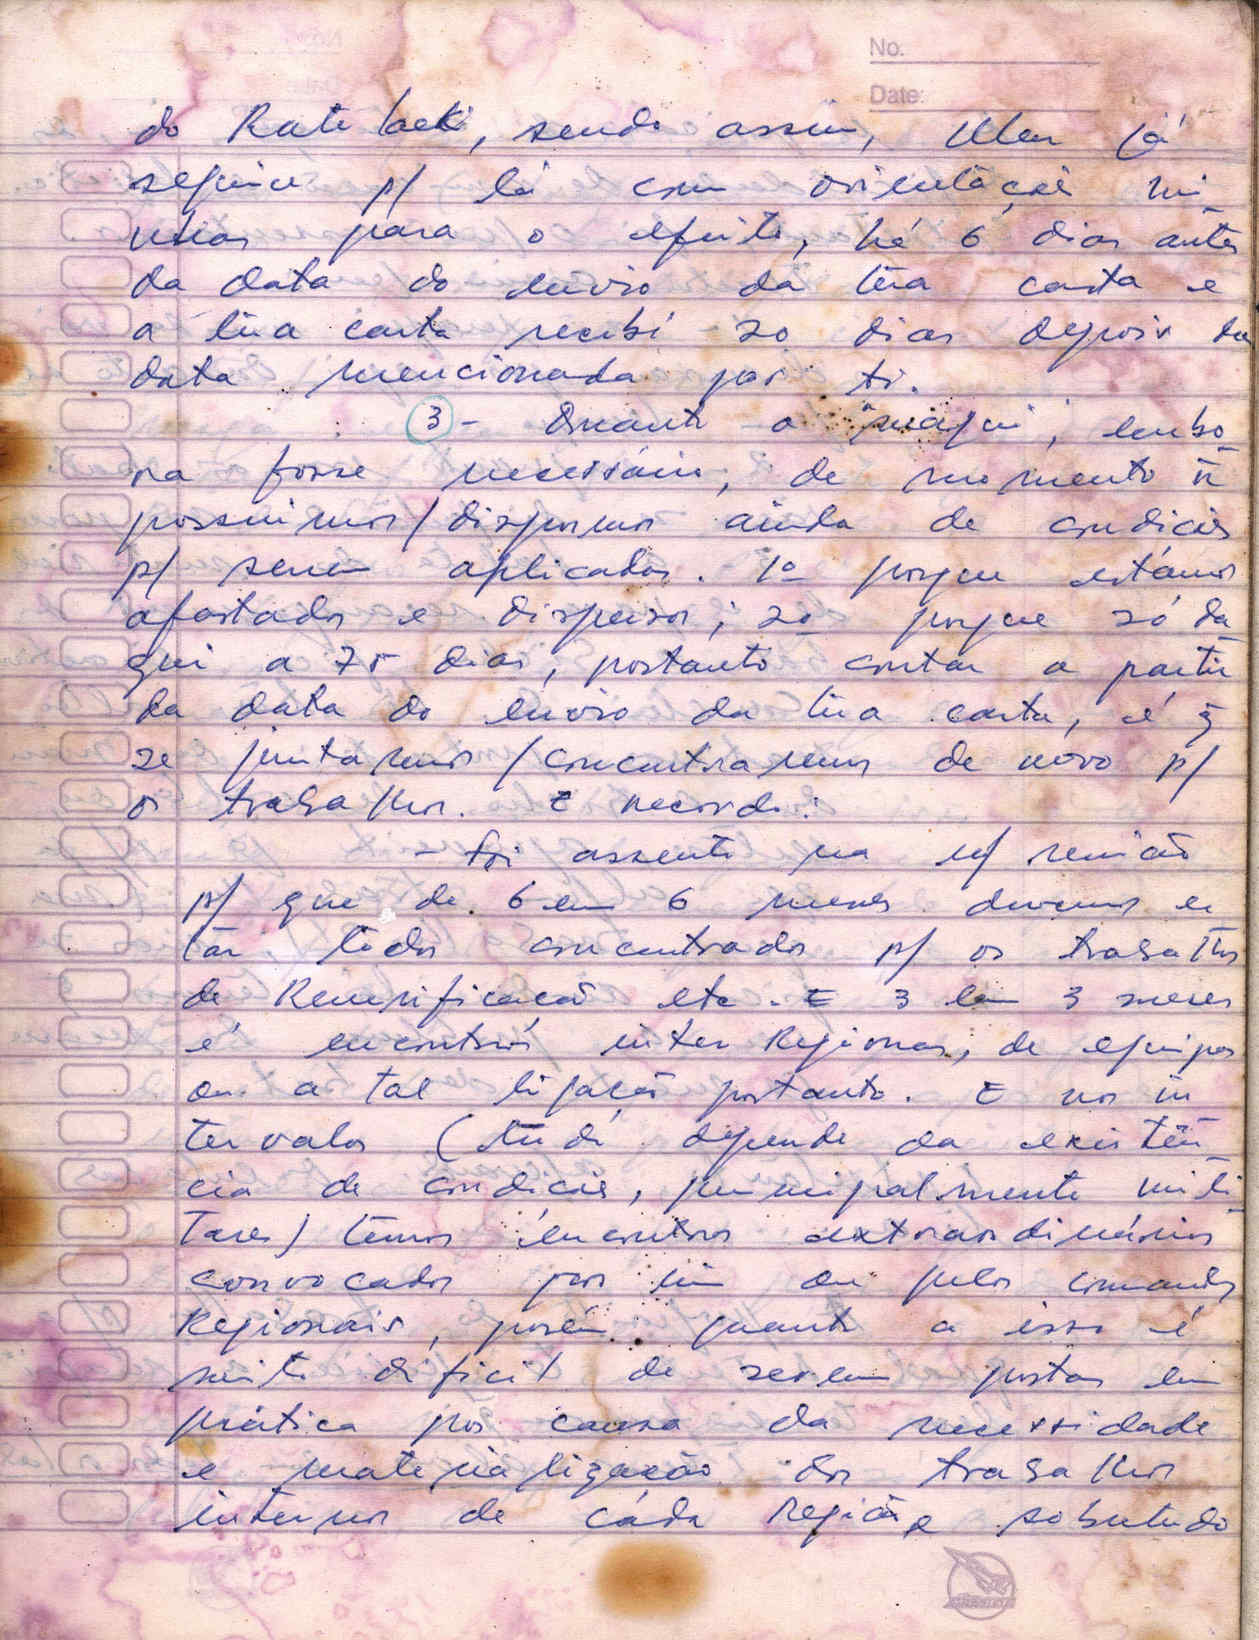 No.
Date:
do Ratelack, sendo assim, já
seguiu p/ lá com orientação mi
nhas para o efeito, há 6 dias antes
da data do envio da tua carta e
a tua carta recebí 20 dias depois da
data mencionada por ti.
3- Quanto a "máqui", embo
ra fosse necessário, de momento ñ
possuimos/dispomos ainda de condições
p/ serem aplicados. 1º porque estámos
afastados e dispersos; 2º porque só da
qui a 75 dias, portanto contar a partir
da data do envio da tua carta, é q̃
se juntaremos/concentraremos de novo p/
os trabalhos. E recorda:
- Foi assente na n/ reunião
p/ que de 6 em 6 meses devemos es
tar todos concentrados p/ os trabalhos
de Remunificação etc. E 3 em 3 meses
é encontros inter Regionas, de equipas
ou a tal ligação portanto. E nos in
tervalos (tudo depende da existên
cia de condições, principalmente mili
tares) temos encontros extraordinários
convocados por mim ou pelos comandos
Regionais, porém quanto a isso é
muito dificil de serem postas em
prática por causa da necessidade
e materialização dos trabalhos
internos de cada Região e sobretudo